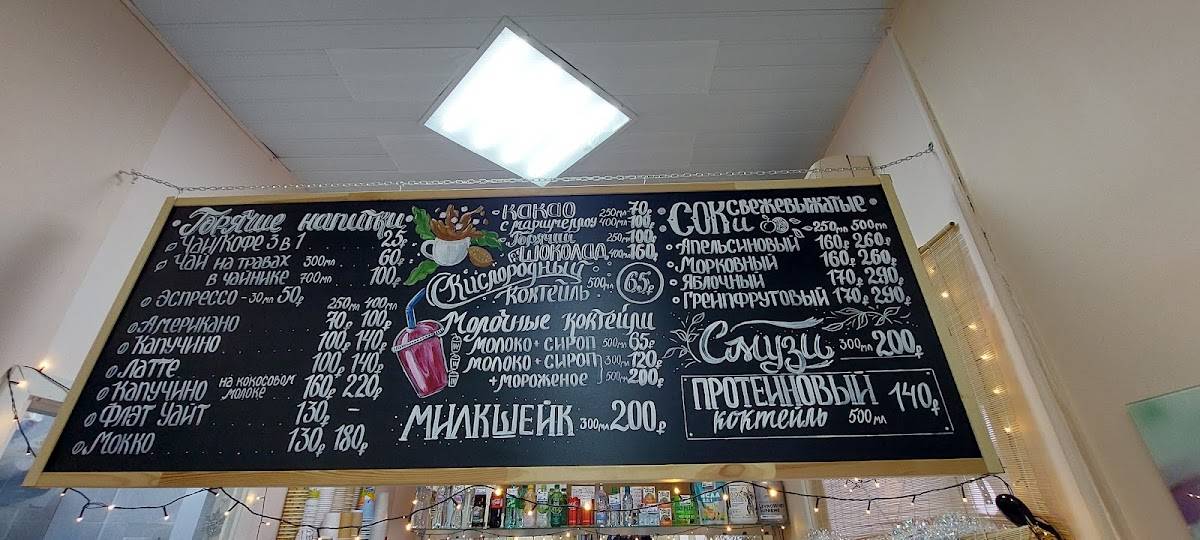 Горячие напитки
Чай/Кофе 3 в 1 25₽
Чай на травах 300мл 60₽
в чайнике 700мл 100₽
Эспрессо - 30мл 50₽
250мл 400мл
Американо 70₽ 100₽
Капучино 100₽ 140₽
Латте 100₽ 140₽
Капучино на кокосовом молоке 160₽ 220₽
Флэт Уайт 130₽ -
Мокко 130₽ 180₽
Какао 250мл 70₽
с маршмеллоу 400мл 100₽
Горячий 250мл 100₽
шоколад 400мл 160₽
Кислородный
коктейль 500мл 65₽
Молочные коктейли
молоко + сироп 500мл 65₽
молоко + сироп 300мл 120₽
+ мороженое 500мл 200₽
Милкшейк 300мл 200₽
Соки свежевыжатые
250мл 500мл
Апельсиновый 160₽ 260₽
Морковный 160₽ 260₽
Яблочный 170₽ 290₽
Грейпфрутовый 170₽ 290₽
Смузи 300мл 200₽
Протеиновый 140₽
коктейль 500мл